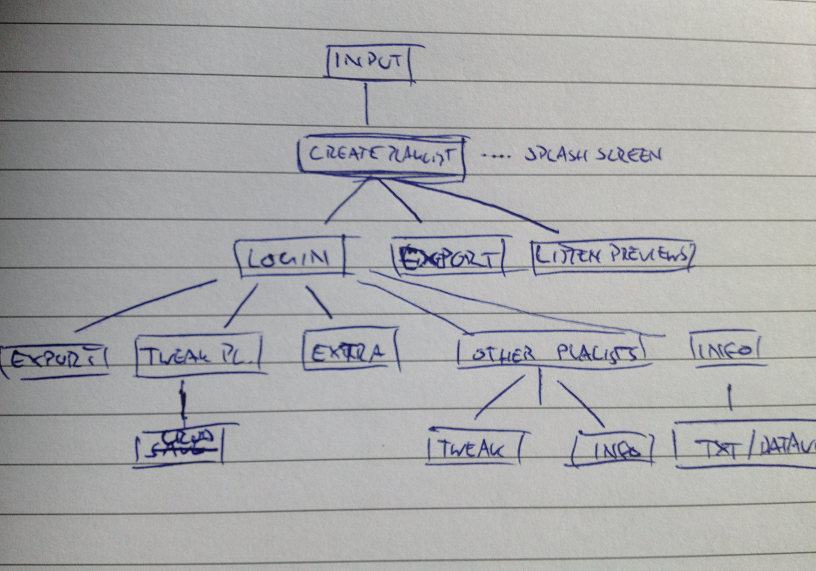 INPUT
CREATE PLAYLIST .... SPLASH SCREEN
LOGIN EXPORT LISTEN PREVIEWS
EXPORT TWEAK PL. EXTRA OTHER PLAYLISTS INFO
CRUD TWEAK INFO TXT/DATAVI